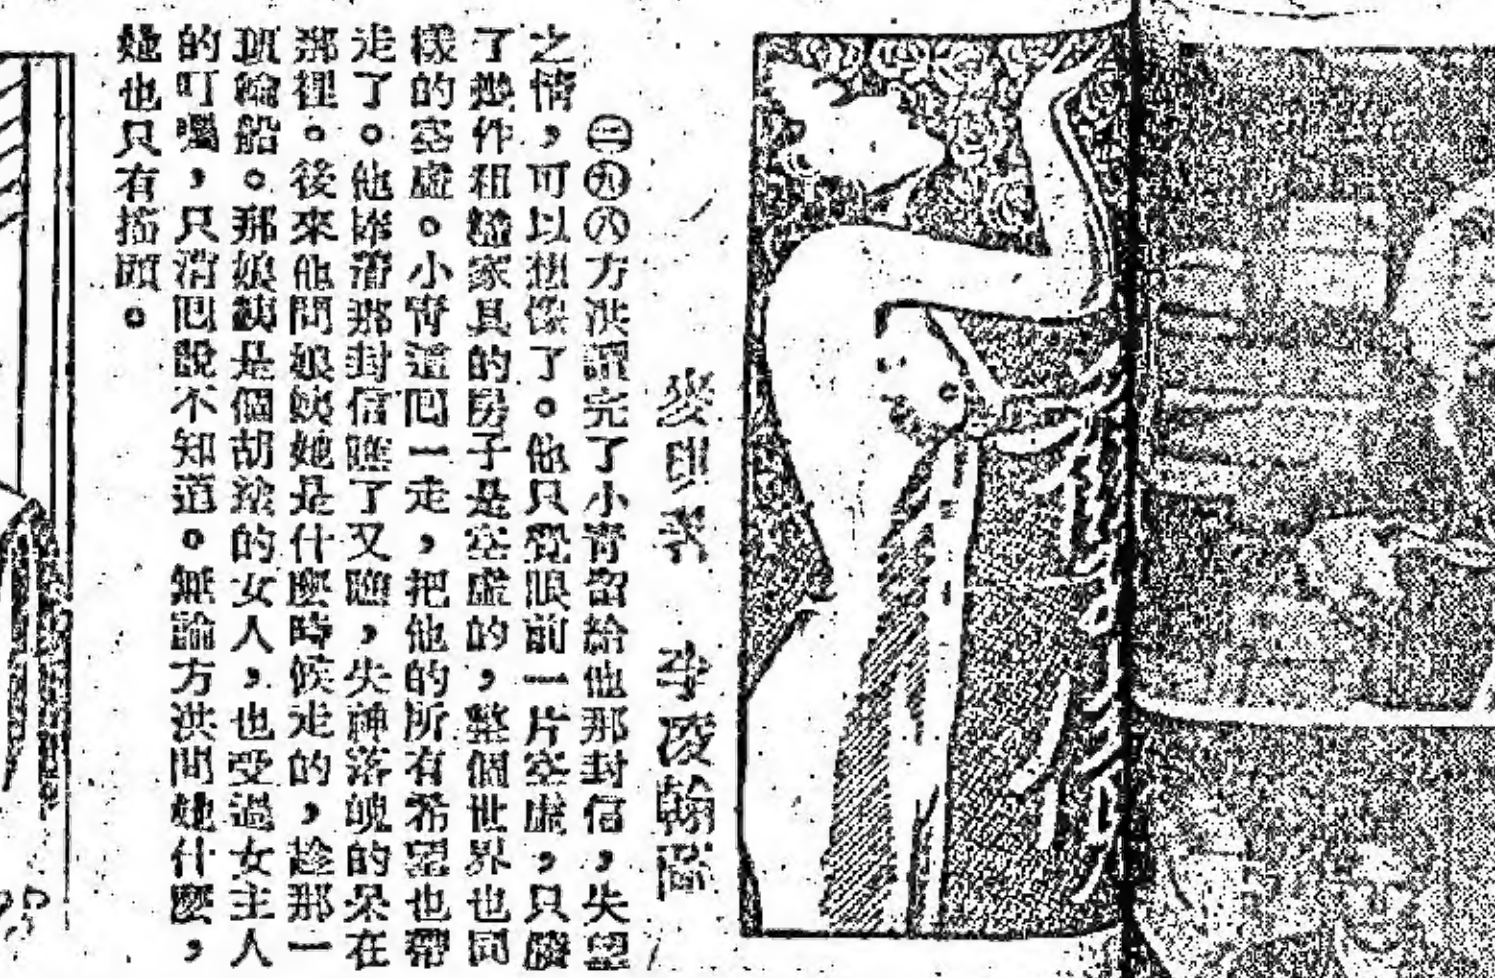 麥耶李凌翰
㊁㊈㊇方洪讀完了小青留給他那封信，失望
之情，可以想像了。他只覺眼前一片空虛，只賸
了幾件租糙家具的房子是空虛的，整個世界也同
樣的空虛。小青這囘一走，把他的所有希望也帶
走了。他捧着那封信瞧了又瞧，失神落魄的呆在
那裡。後來他問娘姨她是什麼時候走的，趁那一
班輪船。那娘姨是個胡塗的女人，也受過女主人
的叮囑，只消囘說不知道。無論方洪問她什麼，
她也只有搖頭。